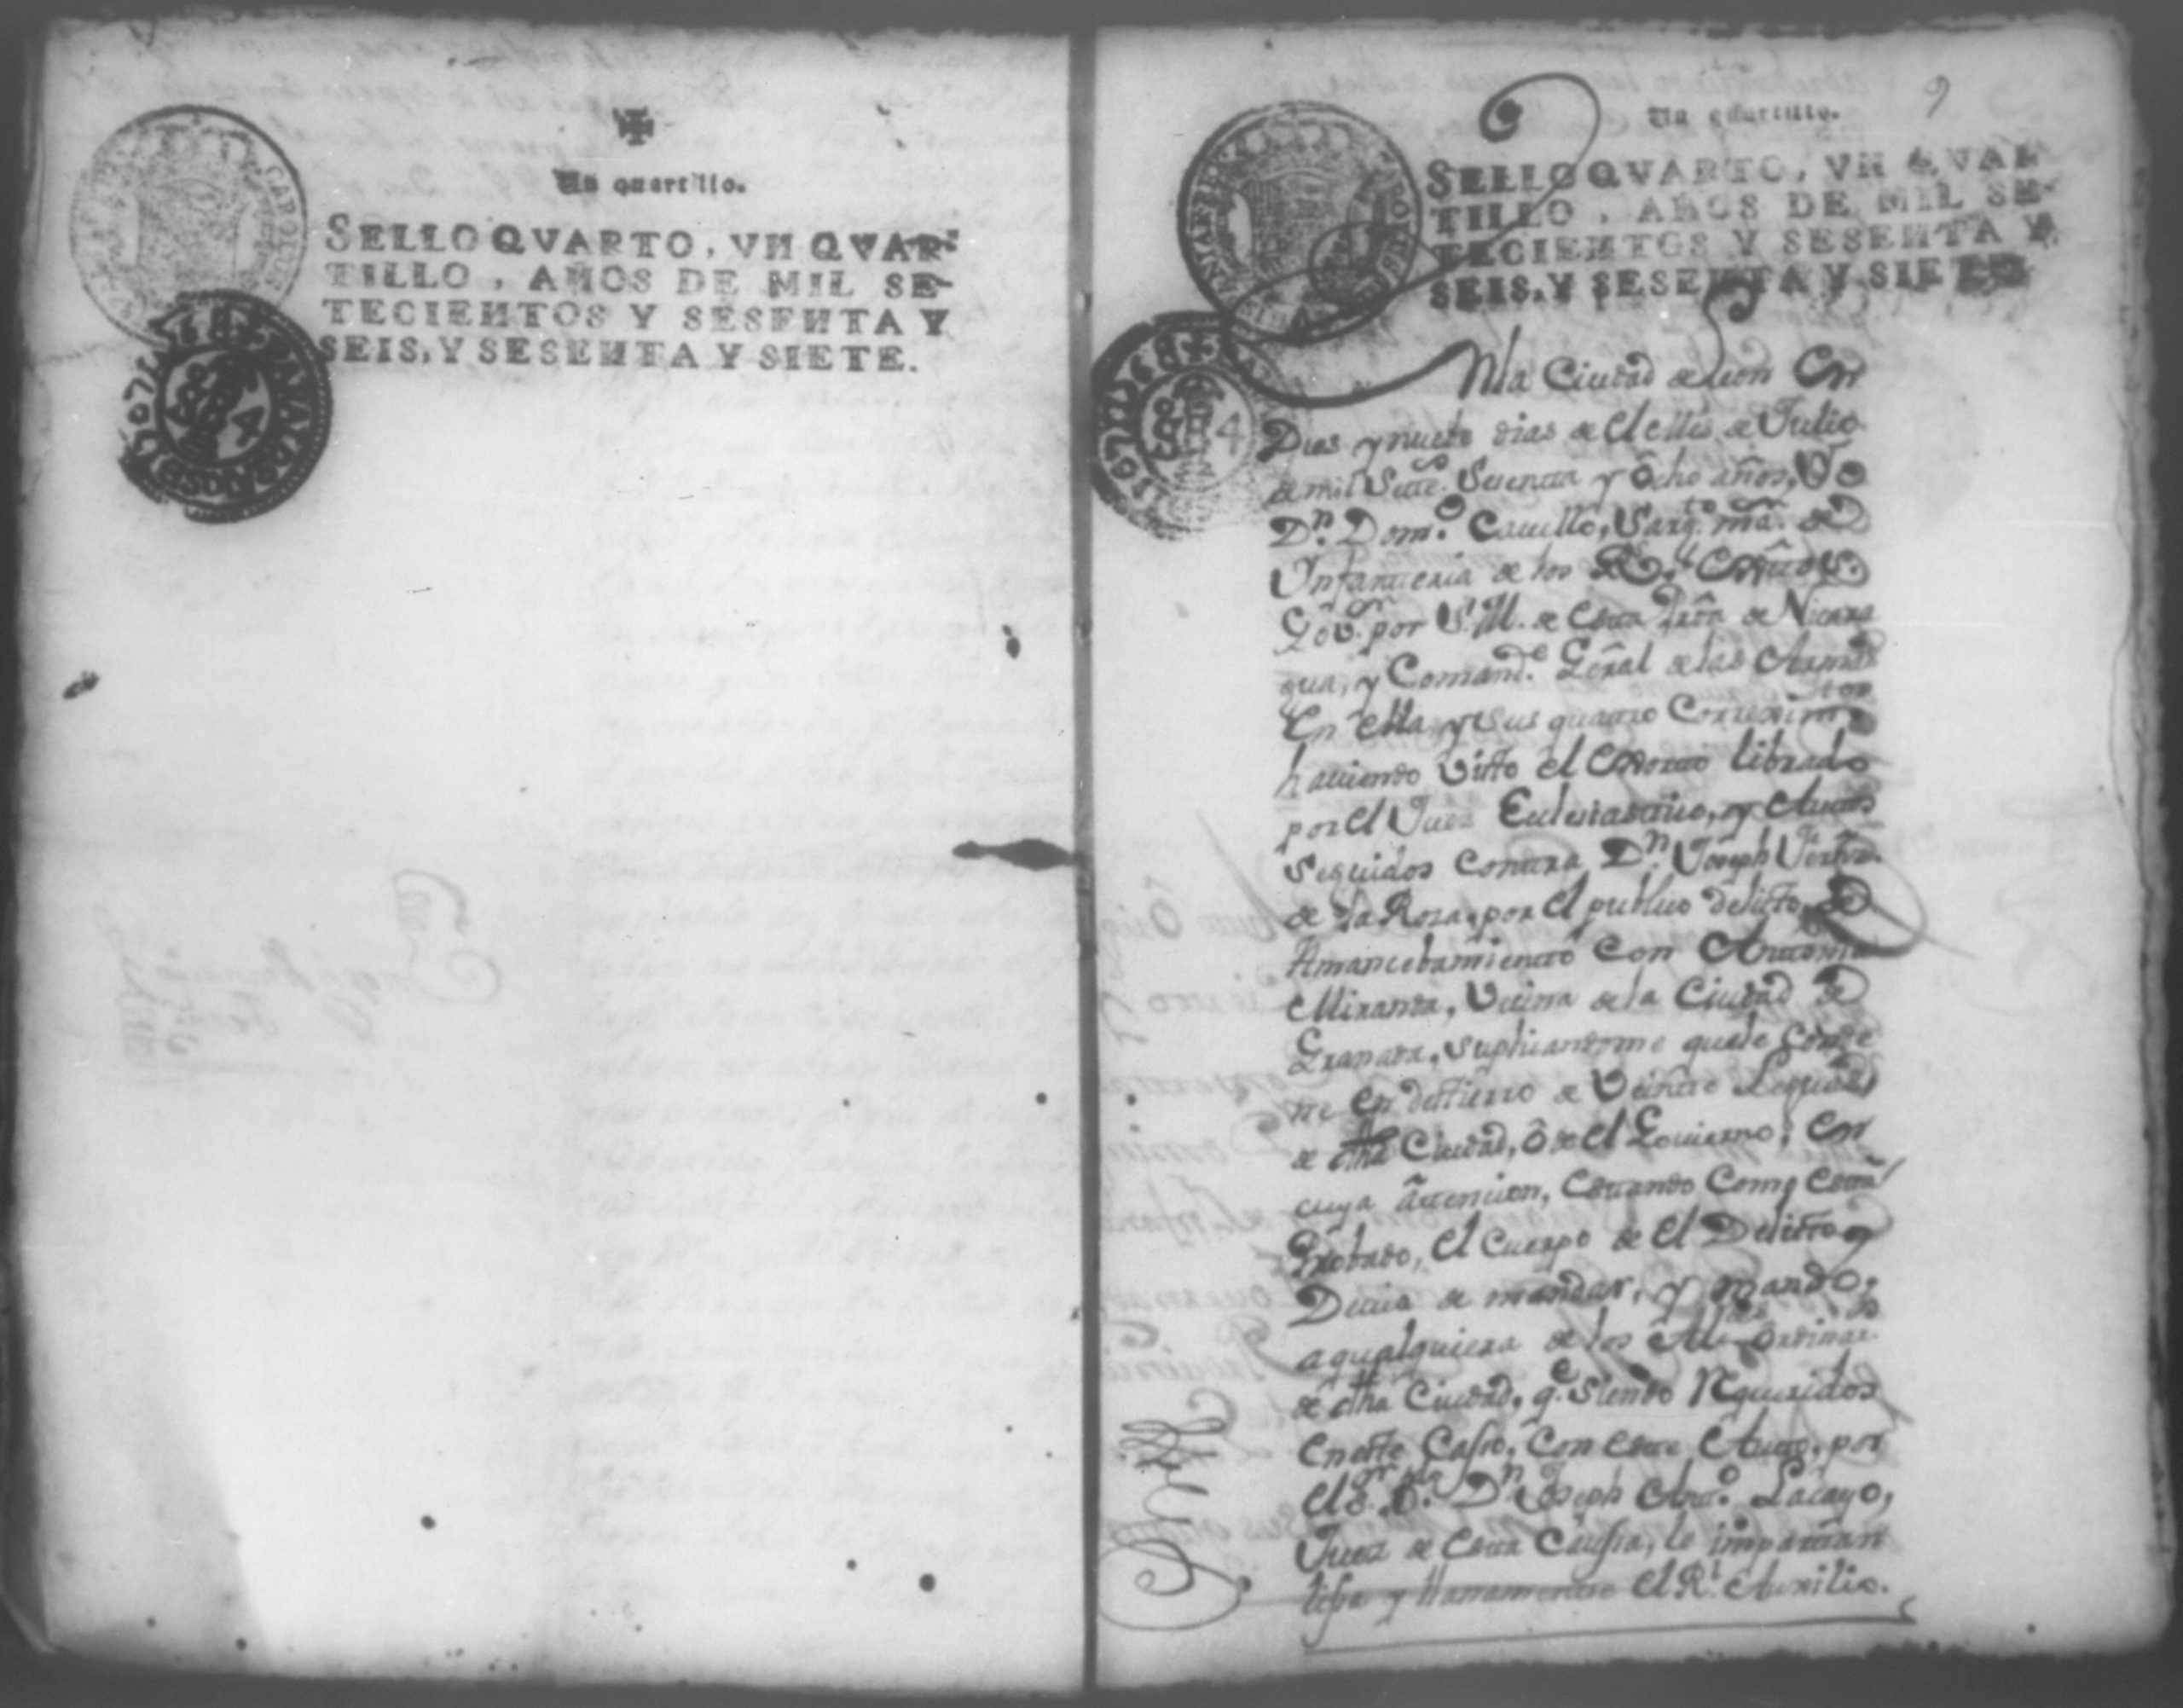 Un quartillo.
SELLO QVARTO, VN QVAR-
TILLO, AÑOS DE MIL SE-
TECIENTOS Y SESENTA Y
SEIS, Y SESENTA Y SIETE.
CAROLUS
9
Un quartillo.
SELLO QVARTO, VN QVAR
TILLO, AÑOS DE MIL SE-
TECIENTOS Y SESENTA Y
SEIS, Y SESENTA Y SIETE
En la Ciudad de Leon en
Dies y nuebe dias de el Mes de Julio
de mil Sete.s Sesenta y Ocho años, Yo
Dn. Dom.o Cavello, Sarg.to mâ. de
Infanteria de los R.s Exercitos
Gov.or por S. M. de esta Prôa de Nicara
gua, y Comand.e Gêral de las Armas
en ella y sus quatro Correximtos
haviendo visto el Exorto librado
por el Juez Eclesiastico, y Autos
seguidos contra Dn. Joseph
de la Rosa, por el publico delicto de
Amancebamiento con Antonia
Miranda, Vecina de la Ciudad de
Granada, suplicandome quele conde
ne en destierro de Veinte Leguas
de dha Ciudad, ô de el Govierno; en
cuya âttencion, estando como está
Probado, el cuerpo de el Delicto
Devia de mandar, y mando,
a qualquiera de los Alcdes Ordinar.os
de dha Ciudad, q.e siendo Requeridos
en este Caso, con este Auto, por
el s.or Dn. Joseph Anto.o Lacayo,
Juez de esta Causa, le impartan
lisa y llanamente el R.l Auxilio.